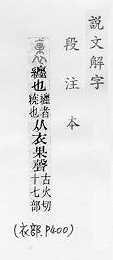 說文解字
段注本
裹 纏也 纏者繞也 从衣果聲 古火切 十七部
(衣部 P400)